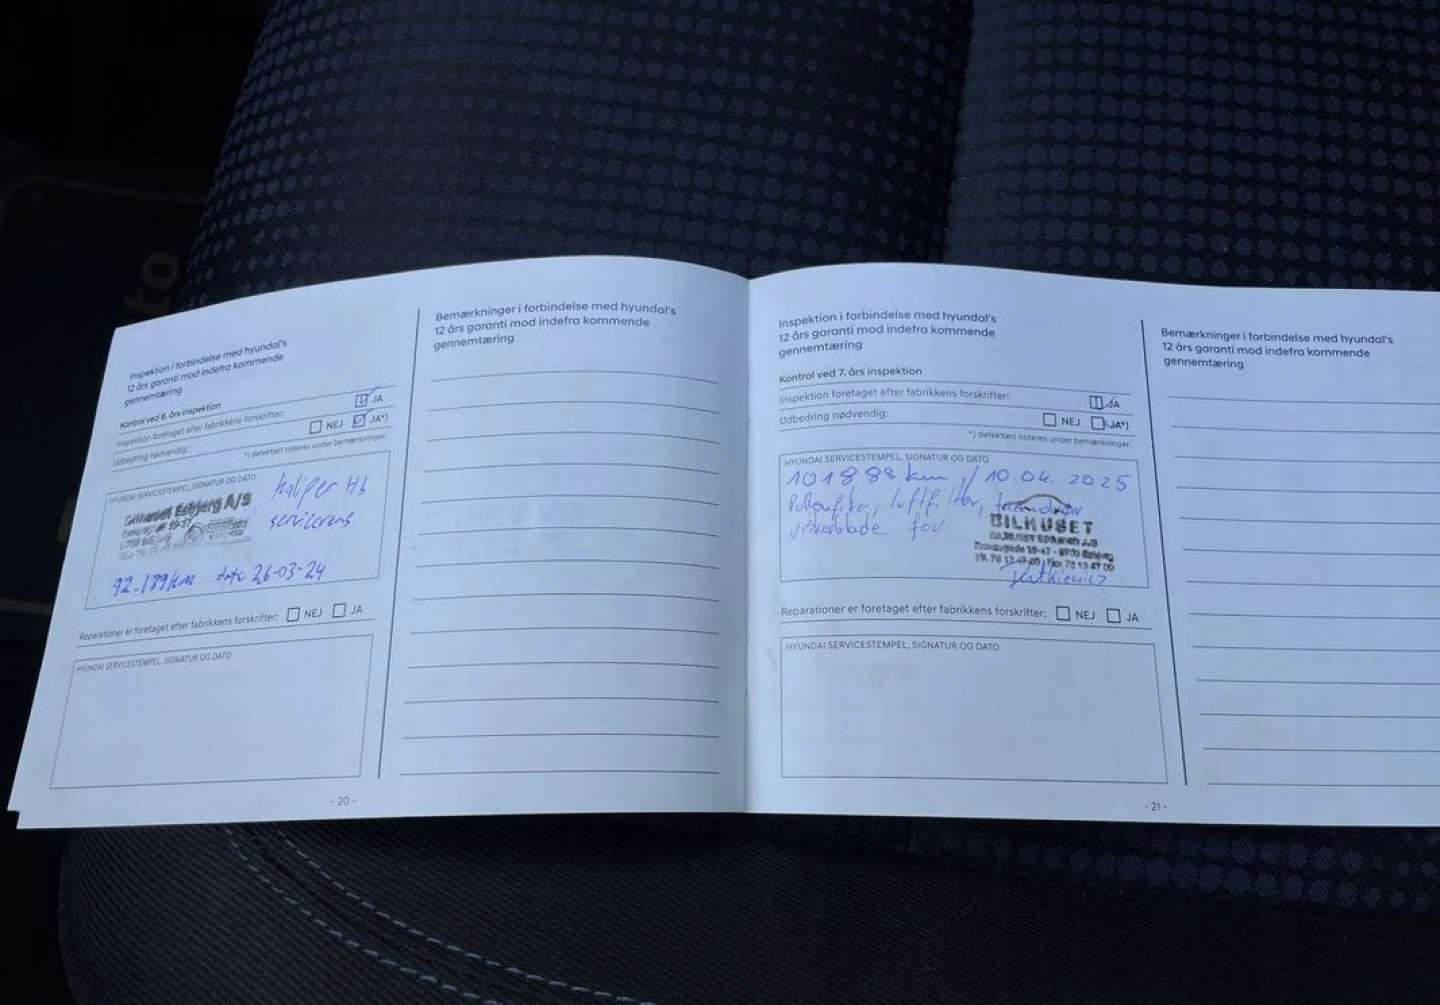 Inspektion i forbindelse med hyundai's
12 års garanti mod indefra kommende
gennemtæring
Kontrol ved 6. års inspektion
Inspektion foretaget efter fabrikkens forskrifter: JA
Udbedring nødvendig: NEJ JA*)
*) defekt(er) noteres under bemærkninger.
HYUNDAI SERVICESTEMPEL, SIGNATUR OG DATO
Bilhuset Esbjerg A/S
Kaliper Hb
serviceres
92.139 km dato 26-03-24
Reparationer er foretaget efter fabrikkens forskrifter: NEJ JA
HYUNDAI SERVICESTEMPEL, SIGNATUR OG DATO
- 20 -
Bemærkninger i forbindelse med hyundai's
12 års garanti mod indefra kommende
gennemtæring
Inspektion i forbindelse med hyundai's
12 års garanti mod indefra kommende
gennemtæring
Kontrol ved 7. års inspektion
Inspektion foretaget efter fabrikkens forskrifter: JA
Udbedring nødvendig: NEJ JA*)
*) defekt(er) noteres under bemærkninger.
HYUNDAI SERVICESTEMPEL, SIGNATUR OG DATO
101888 km / 10.04.2025
Pollenfilter, luftfilter,
viskeblade for
BILHUSET
Reparationer er foretaget efter fabrikkens forskrifter: NEJ JA
HYUNDAI SERVICESTEMPEL, SIGNATUR OG DATO
- 21 -
Bemærkninger i forbindelse med hyundai's
12 års garanti mod indefra kommende
gennemtæring